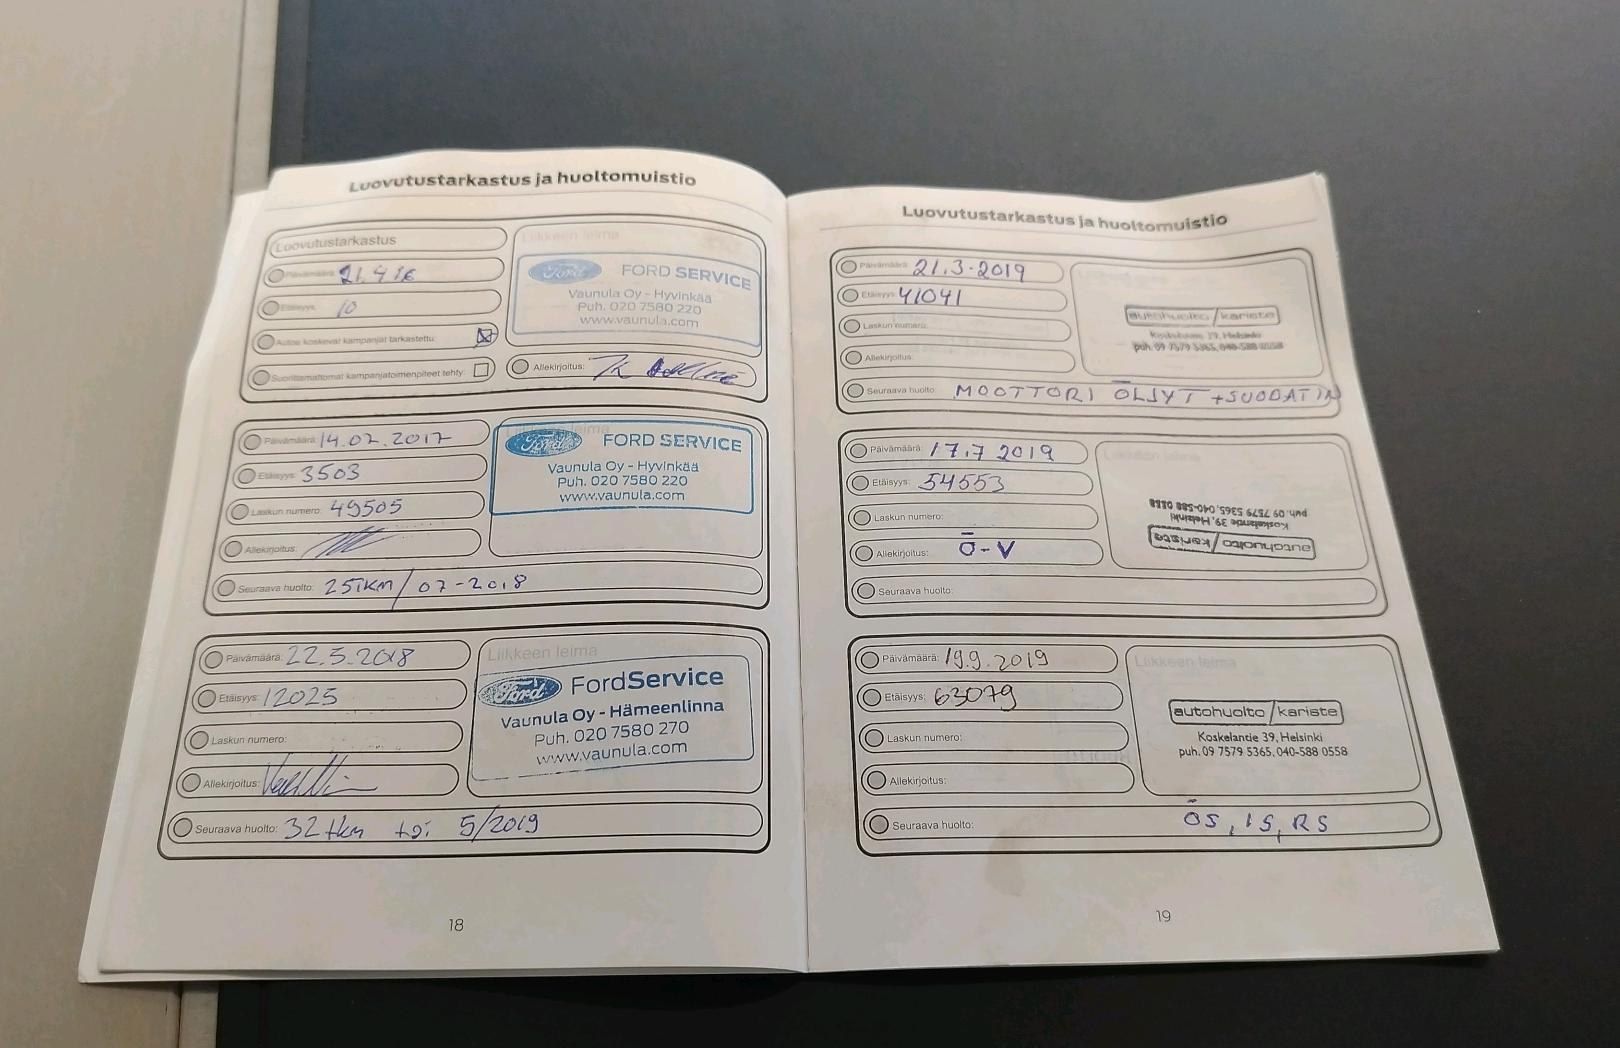 Luovutustarkastus ja huoltomuistio
Luovutustarkastus
Liikkeen leima
Päivämäärä: 21.4 16
Etäisyys: 10
Autoa koskevat kampanjat tarkastettu:
Suorittamattomat kampanjatoimenpiteet tehty:
Ford FORD SERVICE
Vaunula Oy - Hyvinkää
Puh. 020 7580 220
www.vaunula.com
Allekirjoitus:
Päivämäärä: 14.07.2017
Etäisyys: 3503
Laskun numero: 49505
Allekirjoitus:
Liikkeen leima
Ford FORD SERVICE
Vaunula Oy - Hyvinkää
Puh. 020 7580 220
www.vaunula.com
Seuraava huolto: 25TKM/07-2018
Päivämäärä: 22.5.2018
Etäisyys: 12025
Laskun numero:
Allekirjoitus:
Liikkeen leima
Ford FordService
Vaunula Oy - Hämeenlinna
Puh. 020 7580 270
www.vaunula.com
Seuraava huolto: 32 tkm tai 5/2019
18
Luovutustarkastus ja huoltomuistio
Päivämäärä: 21.3-2019
Etäisyys: 41041
Laskun numero:
Allekirjoitus:
autohuolto/kariste
Koskelantie 39, Helsinki
puh. 09 7579 5365, 040-588 0558
Seuraava huolto: MOOTTORI ÖLJYT +SUODATIN
Päivämäärä: 17.7 2019
Etäisyys: 54553
Laskun numero:
Allekirjoitus: Ö-V
Liikkeen leima
autohuolto/kariste
Koskelantie 39, Helsinki
puh. 09 7579 5365, 040-588 0558
Seuraava huolto:
Päivämäärä: 19.9.2019
Etäisyys: 63079
Laskun numero:
Allekirjoitus:
Liikkeen leima
autohuolto/kariste
Koskelantie 39, Helsinki
puh. 09 7579 5365, 040-588 0558
Seuraava huolto: ÖS, IS, RS
19